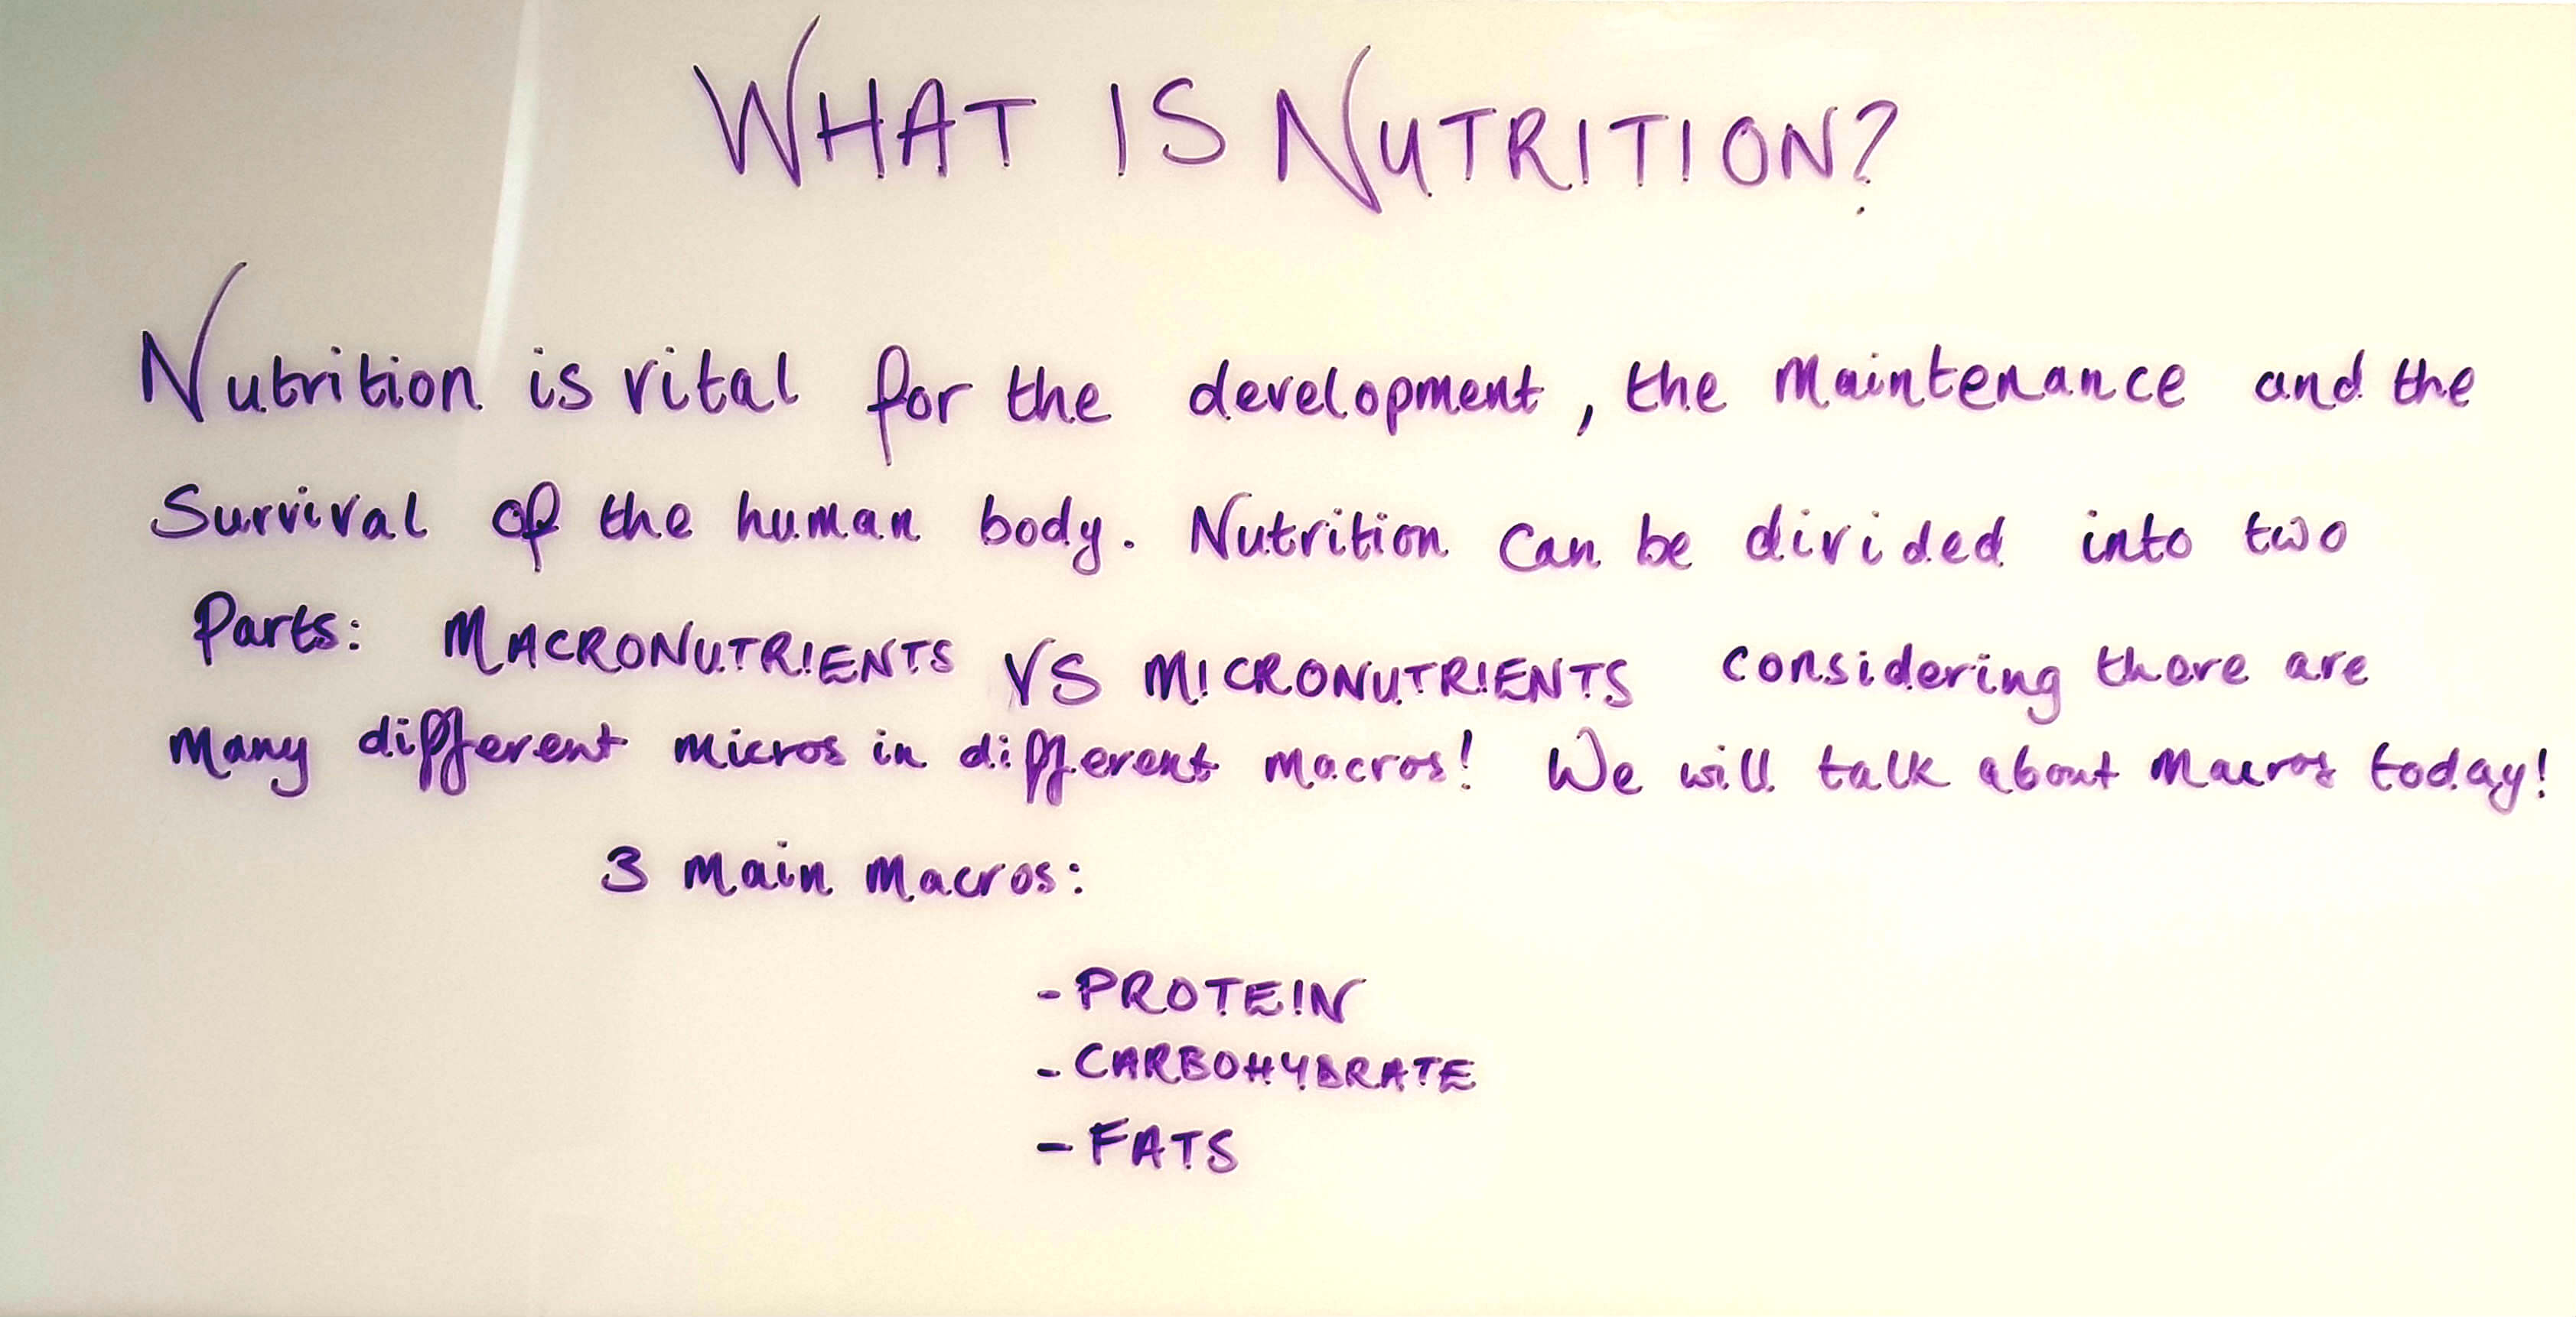 WHAT IS NUTRITION?
Nutrition is vital for the development, the Maintenance and the
Survival of the human body. Nutrition can be divided into two
Parts: MACRONUTRIENTS VS MICRONUTRIENTS considering there are
Many different micros in different macros! We will talk about Macros today!
3 Main Macros:
- PROTEIN
- CARBOHYDRATE
- FATS